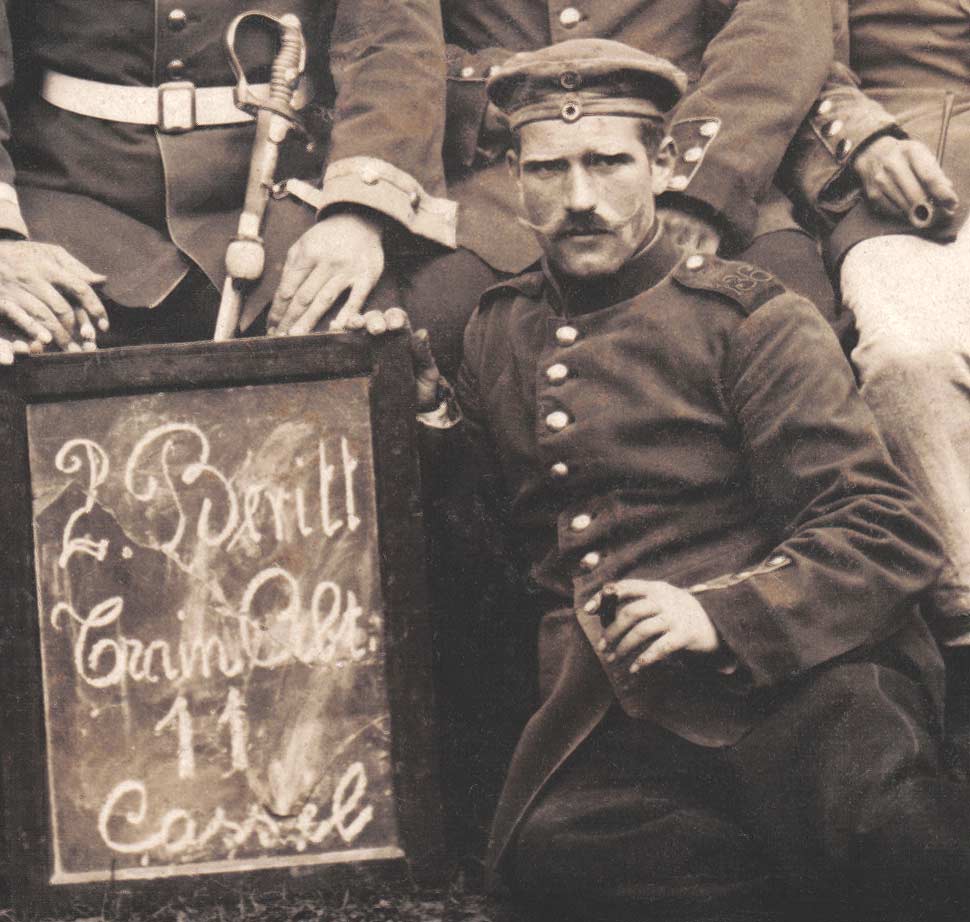 2. Beritt
Train Abt.
11
Cassel